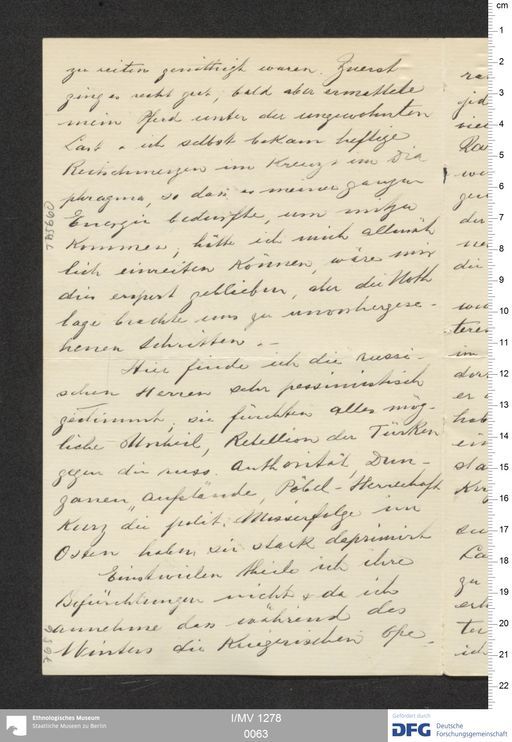 zu reiten genöthigt waren. Zuerst
ging es recht gut, bald aber ermattete
mein Pferd unter der ungewohnten
Last & ich selbst bekam heftige
Reitschmerzen im Kreuz & im Dia
phragma, so dass es meiner ganzen
Energie bedurfte, um mitzu
kommen; hätte ich mich allmäh
lich einreiten können, wäre mir
dies erspart geblieben, aber die Noth
lage brachte uns zu unvorhergese-
henen Schritten. –
Hier finde ich die russi-
schen Herren sehr pessimistisch
gestimmt, sie fürchten alles mög-
liche Unheil, Rebellion der Türken
gegen die russ. Authorität, Dun-
ganen Aufstände, Pöbel-Herrschaft
Kurz die polit. Misserfolge im
Osten haben sie stark deprimirt
Einstweilen theile ich ihre
Befürchtungen nicht & da ich
annehme dass während des
Winters die Kriegerischen Ope-
TA5660
cm
1
2
3
4
5
6
7
8
9
10
11
12
13
14
15
16
17
18
19
20
21
22
Ethnologisches Museum
Staatliche Museen zu Berlin
I/MV 1278
0063
Gefördert durch
DFG
Deutsche
Forschungsgemeinschaft